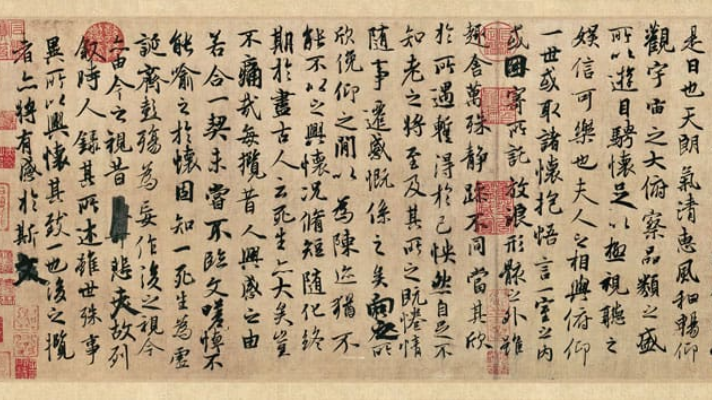 是日也天朗氣清惠風和暢仰
觀宇宙之大俯察品類之盛
所以遊目騁懷足以極視聽之
娛信可樂也夫人之相與俯仰
一世或取諸懷抱悟言一室之內
或因寄所託放浪形骸之外雖
趣舍萬殊靜躁不同當其欣
於所遇蹔得於己怏然自足不
知老之將至及其所之既惓情
隨事遷感慨係之矣向之所
欣俛仰之閒以為陳迹猶不
能不以之興懷況脩短隨化終
期於盡古人云死生亦大矣豈
不痛哉每攬昔人興感之由
若合一契未嘗不臨文嗟悼不
能喻之於懷固知一死生為虛
誕齊彭殤為妄作後之視今
亦由今之視昔悲夫故列
敘時人錄其所述雖世殊事
異所以興懷其致一也後之攬
者亦將有感於斯文